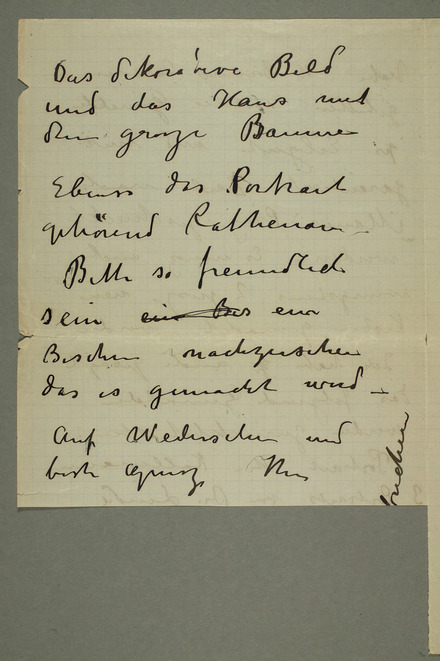 Das dekorative Bild
und das Haus mit
den grosze Baume
Ebenso das Portrait
gehörend Rathenau –
Bitte so freundlich
sein ein Bis ein
Bischen nachzusehen
das es gemacht wird –
Auf Wedersehen und
beste Grusze Ihr